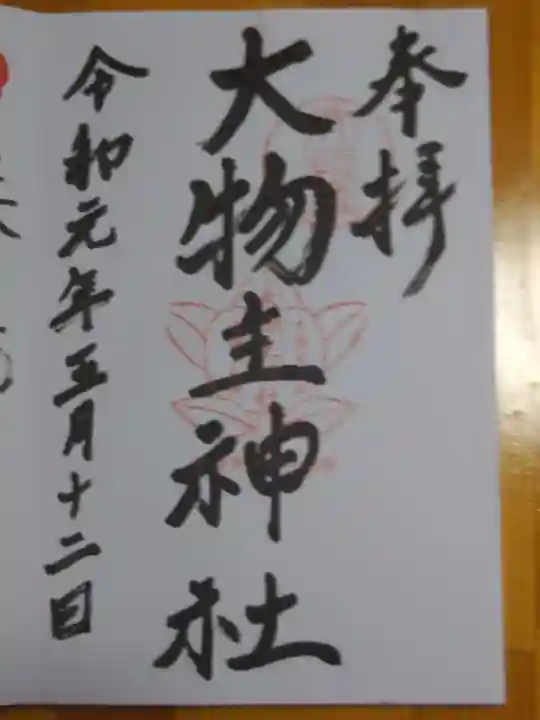 奉拝
大物主神社
令和元年五月十二日